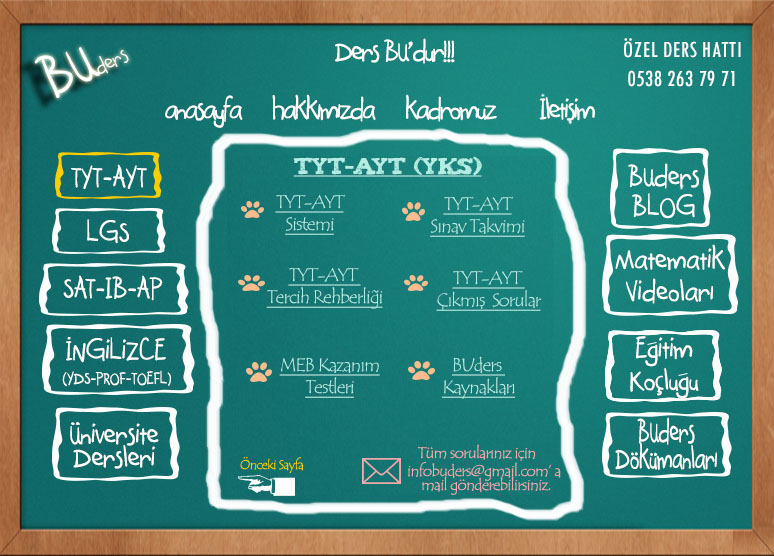 BUders
Ders BU'dur!!!
ÖZEL DERS HATTI
0538 263 79 71
anasayfa hakkımızda Kadromuz İletişim
TYT-AYT
LGS
SAT-IB-AP
İNGİLİZCE
(YDS-PROF-TOEFL)
Üniversite
Dersleri
TYT-AYT (YKS)
TYT-AYT
Sistemi
TYT-AYT
Sınav Takvimi
TYT-AYT
Tercih Rehberliği
TYT-AYT
Çıkmış Sorular
MEB Kazanım
Testleri
BUders
Kaynakları
Önceki Sayfa
Tüm sorularınız için
infobuders@gmail.com' a
mail gönderebilirsiniz.
Buders
BLOG
Matematik
Videoları
Eğitim
Koçluğu
Buders
DöKümanları